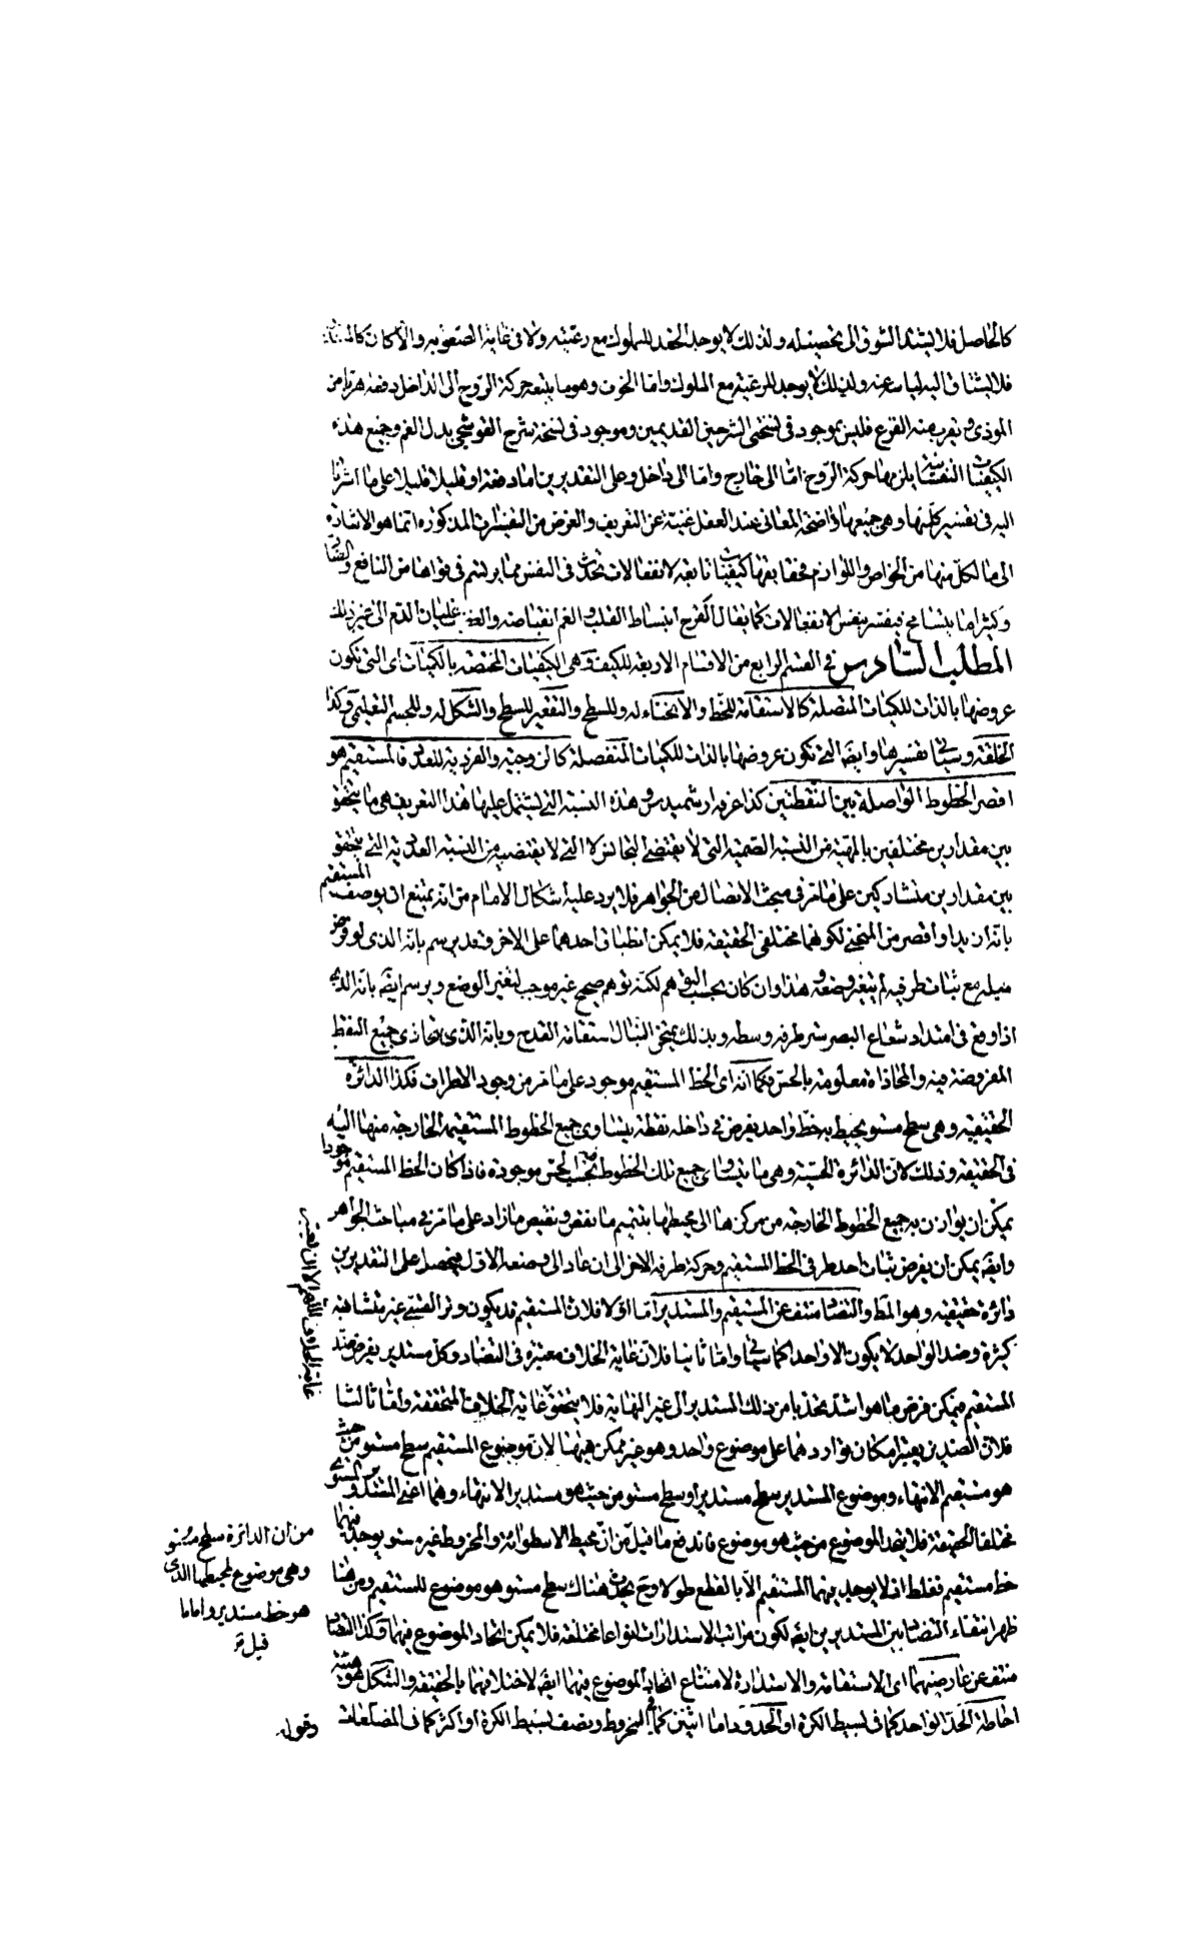 كالحاصل فلا يشتد الشوق الى تحصيله ولذلك لا يوجد الحقد للملوك مع رعيته ولا فى غاية الصعوبة والا كان كالمتعذر
فلا يشتاق اليه لياس عنه ولذلك لا يوجد للرعية مع الملوك واما الخوف وهو ما يتبعه حركة الروح الى الداخل دفعة هربا من
الموذى ويقرب منه الفزع فليس بموجود فى نسختى الشرحين القديمين وموجود فى نسخة شرح القوشجى بدل الغم وجميع هذه
الكيفيات النفسانية يلزمها حركة الروح اما الى خارج واما الى داخل وعلى التقديرين اما دفعة او قليلا قليلا على ما اشرنا
اليه فى تفسير كلّ منها وهى جميعها واضحة المعانى عند العقل غنية عن التعريف والغرض من التفسيرات المذكورة انما هو الاشارة
الى ما لكل منها من الخواص واللوازم فحقايقها كيفيات تابعة لانفعالات تحدث فى النفس مما يرتسم فى قواها من النافع والضار
وكثيرا ما يتسامح فيفسّر بنفس الانفعالات كما يقال الفرح انبساط القلب والغم انقباضه والغضب غليان الدم الى غير ذلك
المطلب السّادس فى القسم الرابع من الاقسام الاربعة للكيف وهى الكيفيات المختصة بالكميات اى التى تكون
عروضها بالذات للكميات المتصلة كالاستقامة للخط والانحناء له وللسطح والتقعير للسطح والشكل له وللجسم التعليمى وكذا
الخلقة وسياتى تفسيرها وايضا التى تكون عروضها بالذات للكميات المنفصلة كالزوجية والفردية للعدد فالمستقيم هو
اقصر الخطوط الواصلة بين النقطتين كذا عرفه ارشميدس وهذه النسبة التى يشتمل عليها هذا التعريف هى ما يتحقق
بين مقدارين مختلفين بالمهية من النسبة الصمية التى لا يقتضى التجانس لا التى لا يقتضيه من النسبة العددية التى يتحقق
بين مقدارين متشاركين على ما مر فى مبحث الاتصال من الجواهر فلا يرد عليه اشكال الامام من انه يمتنع ان يوصف المستقيم
بانه ازيد او اقصر من المنحنى لكونهما مختلفى الحقيقة فلا يمكن انطباق احدهما على الاخر وقد يرسم بانه الذى لو فرض
ميله مع ثبات طرفيه لم يتغير وضعه وهذا وان كان بحسب التوهم لكنه توهم صحيح غير موجب لتغير الوضع ويرسم ايضا بانه الذى
اذا وقع فى امتداد شعاع البصر ستر طرفه وسطه وبذلك يمتحن النبال استقامة القدح وبانه الذى يتحاذى جميع النقط
المفروضة فيه والمحاذاة معلومة بالحس فكما انه اى الخط المستقيم موجود على ما مر من وجود الاطراف فكذا الدائرة
الحقيقية وهى سطح مستو يحيط به خط واحد يفرض فى داخله نقطة يتساوى جميع الخطوط المستقيمة الخارجة منها اليه
فى الحقيقة وذلك لان الدائرة الحسية وهى ما يتساوى جميع تلك الخطوط بحسب الحس موجودة فاذا كان الخط المستقيم موجودا
يمكن ان يوازن به جميع الخطوط الخارجة من مركزها الى محيطها بتتميم ما نقص وتنقيص ما زاد على ما مر فى مباحث الجواهر
وايضا يمكن ان يفرض ثبات احد طرفى الخط المستقيم وحركة طرفه الاخر الى ان عاد الى وضعه الاول فيحصل على التقديرين
دائرة حقيقية وهو المط والتضاد منتف عن المستقيم والمستدير اما اولا فلان المستقيم قد يكون وتر القسى غير متشابهة
كثيرة وضد الواحد لا يكون الا واحدا كما سياتى واما ثانيا فلان غاية الخلاف معتبرة فى التضاد وكل مستدير يفرض ضد
المستقيم فيمكن فرض ما هو اشد تحدبا من ذلك المستدير الى غير النهاية فلا يتحقق غاية الخلاف المتحققة واما ثالثا
فلان الضدين يعتبر امكان تواردهما على موضوع واحد وهو غير ممكن فيهما لان موضوع المستقيم سطح مستو من حيث
هو مستقيم الانتهاء وموضوع المستدير سطح مستدير او سطح مستو من حيث هو مستدير الانتهاء وهما اعنى المستدير والمستوى
مختلفا الحقيقة فلا يتحد الموضوع من حيث هو موضوع فاندفع ما قيل من ان محيط الاسطوانة والمخروط غير مستو يوجد فيهما
خط مستقيم فغلط اذ لا يوجد فيهما المستقيم الا بالقطع طولا وح يحدث هناك سطح مستو هو موضوع للمستقيم ومن هنا
ظهر انتفاء التضاد بين المستديرين ايضا لكون مراتب الاستدارات انواعا مختلفة فلا يمكن اتحاد الموضوع فيهما وكذا التضاد
منتف عن عارضيهما اى الاستقامة والاستدارة لامتناع اتحاد الموضوع فيهما ايضا لاختلافهما بالحقيقة والشكل هو هيئة
احاطة الحد الواحد كما فى بسيط الكرة او الحدود اما اثنين كما فى المخروط ونصف لبسيط الكرة او اكثر كما فى المضلعات
غاية الخلاف اللهم الا ان يعتبر
من ان الدائرة سطح مستو
وهى موضوع لمحيطها الذى
هو خط مستدير واما ما
قيل
وقوله